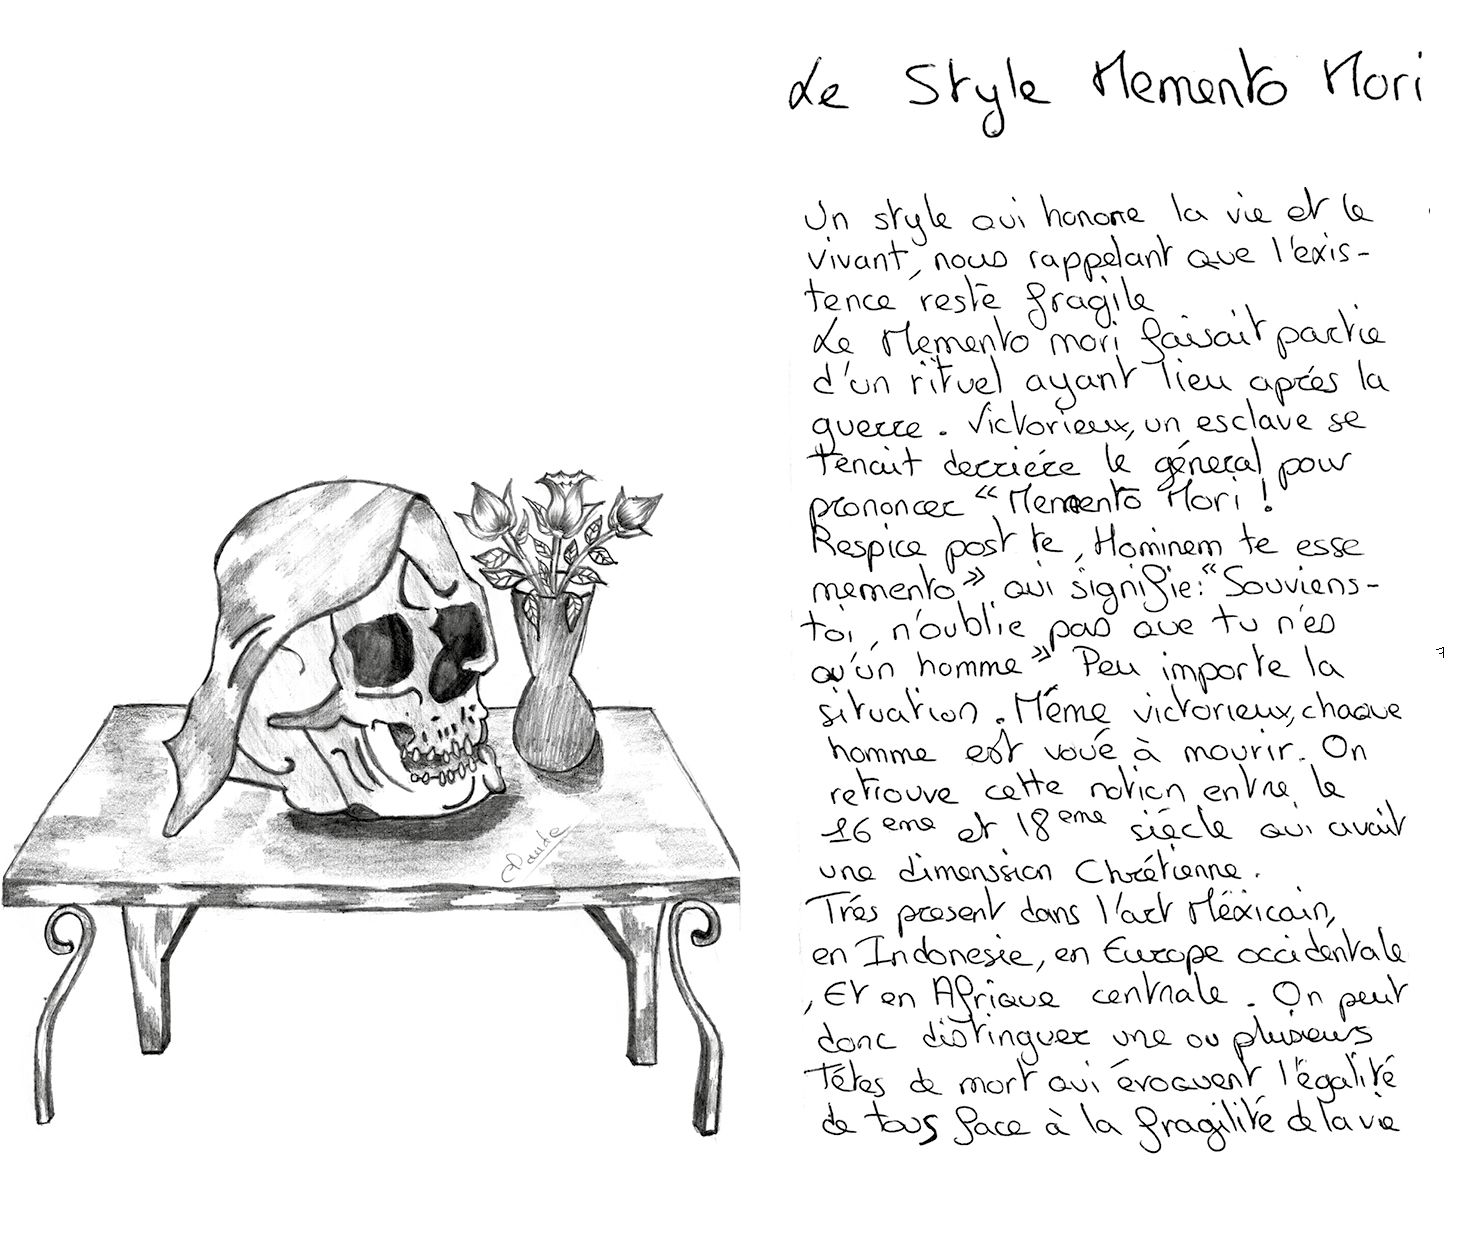 Le Style Memento Mori
Un style qui honore la vie et le
vivant, nous rappelant que l'exis-
tence reste fragile
Le Memento mori faisait partie
d'un rituel ayant lieu aprés la
guerre. Victorieux, un esclave se
tenait derriére le géneral pour
prononcer "Memento Mori !
Respice post te, Hominem te esse
memento" qui signifie: "Souviens-
toi, n'oublie pas que tu n'es
qu'un homme" Peu importe la
situation. Méme victorieux, chaque
homme est voué à mourir. On
retrouve cette notion entre le
16 eme et 18 eme siécle qui avait
une dimenssion Chrétienne.
Trés present dans l'art Méxicain,
en Indonesie, en Europe occidentale
, Et en Afrique centrale. On peut
donc distinguer une ou plusieurs
Tétes de mort qui évoquent l'égalité
de tous face à la fragilité de la vie